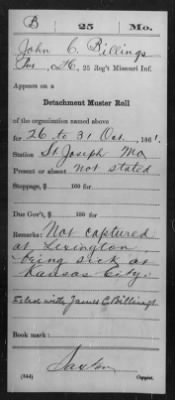 B 25 Mo.
John C. Billings
Pvt, Co. K, 25 Reg't Missouri Inf.
Appears on a
Detachment Muster Roll
of the organization named above
for 26 to 31 Oct, 1861.
Station St Joseph Mo
Present or absent not stated
Stoppage, $ 100 for
Due Gov't, $ 100 for
Remarks: Not captured
at Lexington
being sick at
Kansas City.
Filed with James C Billings
Book mark:
Saxton
(344) Copyist.